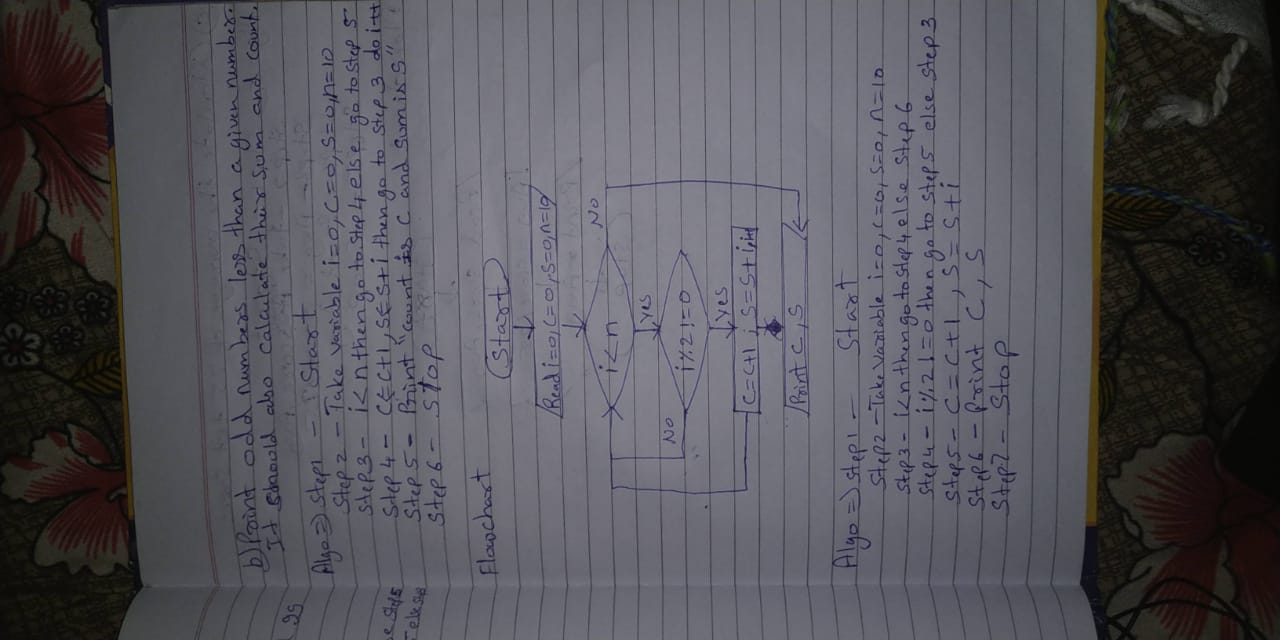 b) Print odd numbers less than a given number.
It should also calculate their sum and count.
Algo => Step1 - Start
Step2 - Take variable i=0, C=0, S=0, n=10
Step3 - i<n then go to step 4 else go to step 5
Step 4 - C ← C+1, S ← S+i then go to step 3 do i++
Step 5 - Print "count is C and sum is S"
Step 6 - Stop
Flowchart
Start
Read i=0, C=0, S=0, n=10
i<n
NO
Yes
i%2!=0
NO
Yes
C=C+1, S=S+i, i++
Print C, S
Algo => Step1 - Start
Step2 - Take variable i=0, C=0, S=0, n=10
Step3 - i<n then go to step 4 else step 6
Step4 - i%2!=0 then go to step 5 else step 3
Step5 - C=C+1, S=S+i
Step6 - Print C, S
Step7 - Stop